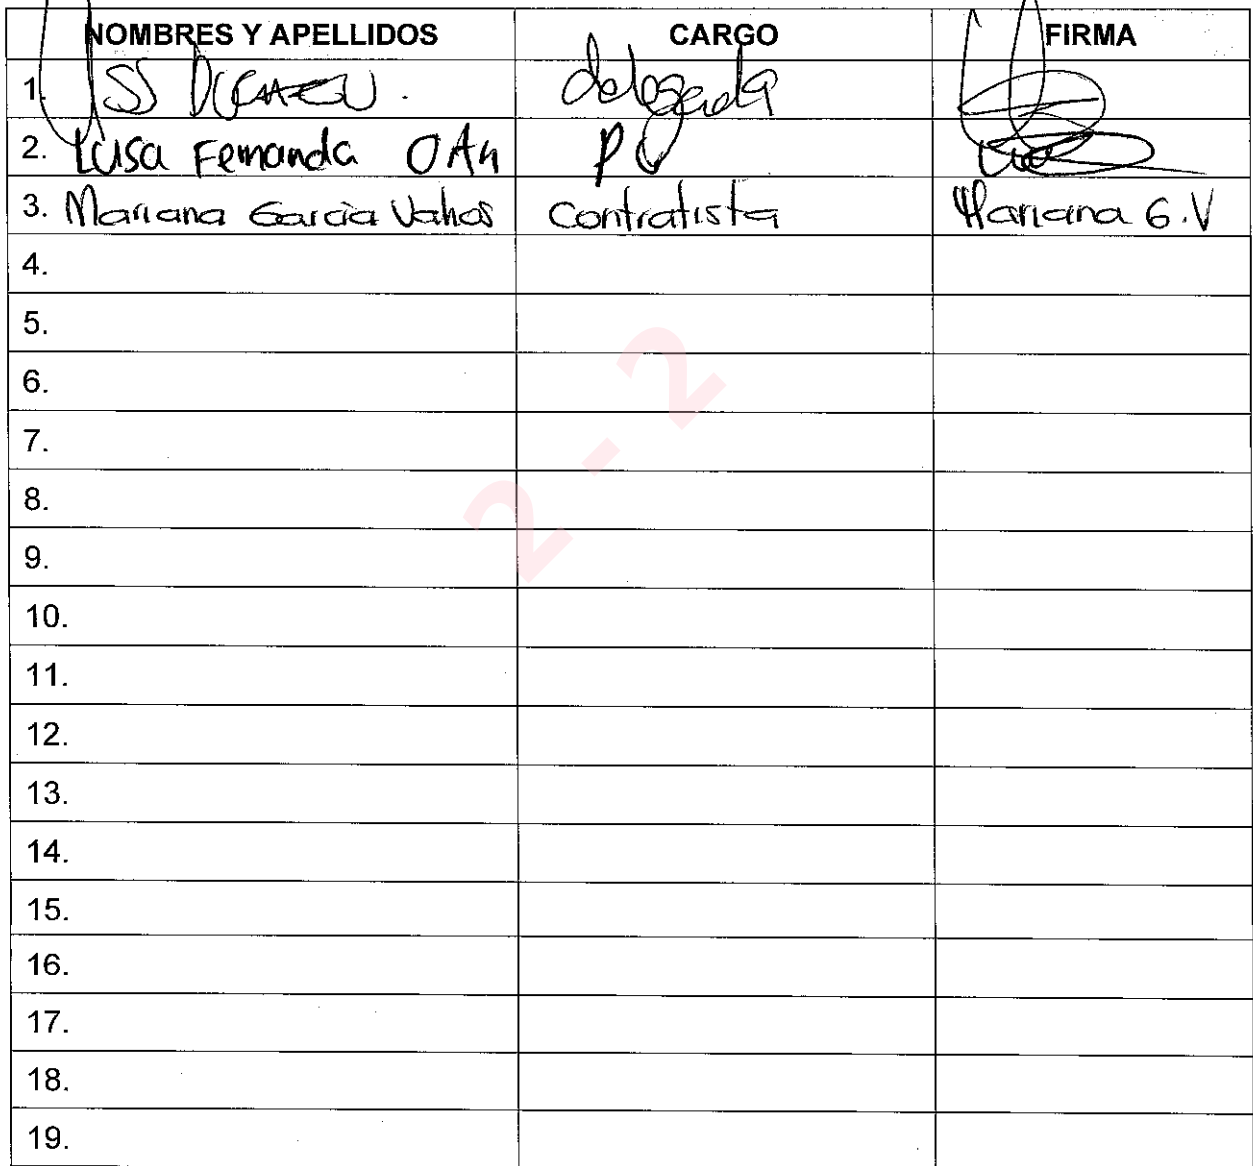 NOMBRES Y APELLIDOS CARGO FIRMA
1. delegada
2. Luisa Fernanda PU
3. Mariana Garcia Vahos Contratista Mariana G.V
4.
5.
6.
7.
8.
9.
10.
11.
12.
13.
14.
15.
16.
17.
18.
19.
2 - 2